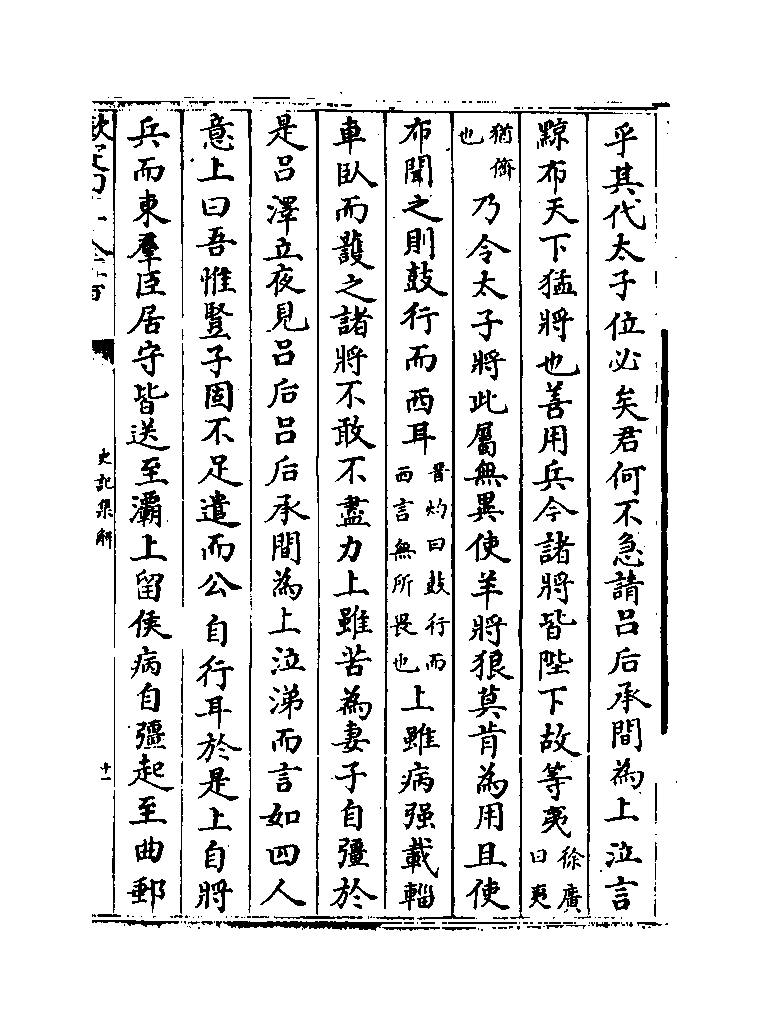 乎其代太子位必矣君何不急請吕后承間為上泣言
黥布天下猛將也善用兵今諸將皆陛下故等夷徐廣曰夷
猶儕也乃令太子將此屬無異使羊將狼莫肯為用且使
布聞之則鼓行而西耳晉灼曰鼓行而西言無所畏也上雖病强載輜
車臥而護之諸將不敢不盡力上雖苦為妻子自彊於
是吕澤立夜見吕后吕后承間為上泣涕而言如四人
意上曰吾惟豎子固不足遣而公自行耳於是上自將
兵而東羣臣居守皆送至灞上留侯病自彊起至曲郵
史記集解
十一